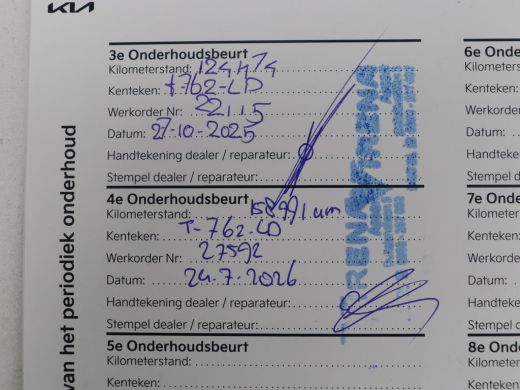 KIA
3e Onderhoudsbeurt
Kilometerstand:
Kenteken: T762-LD
Werkorder Nr: 22115
Datum: 27-10-2025
Handtekening dealer / reparateur:
Stempel dealer / reparateur:
4e Onderhoudsbeurt
Kilometerstand:
Kenteken: T-762-LD
Werkorder Nr: 27592
Datum: 24.7.2026
Handtekening dealer / reparateur:
Stempel dealer / reparateur:
5e Onderhoudsbeurt
Kilometerstand:
Kenteken:
van het periodiek onderhoud
6e On
Kilomet
Kenteken
Werkorde
Datum:
Handteken
Stempel de
7e Ond
Kilometers
Kenteken:
Werkorder
Datum:
Handtekeni
Stempel de
8e Ond
Kilometer
Kenteken